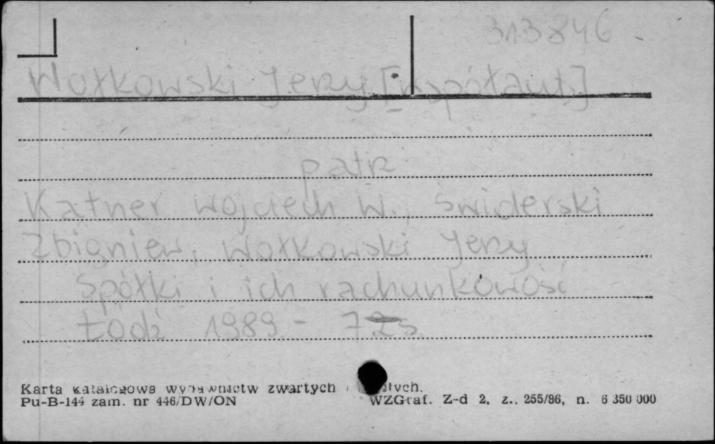 313846
Wołkowski Jerzy [współaut.]
patrz
Katner Wojciech W., Świderski
Zbigniew, Wołkowski Jerzy
Spółki i ich rachunkowość
Łódź 1989 -
Karta katalogowa wydawnictw zwartych
Pu-B-144 zam. nr 446/DW/ON WZGraf. Z-d 2, z. 255/86, n. 6 350 000